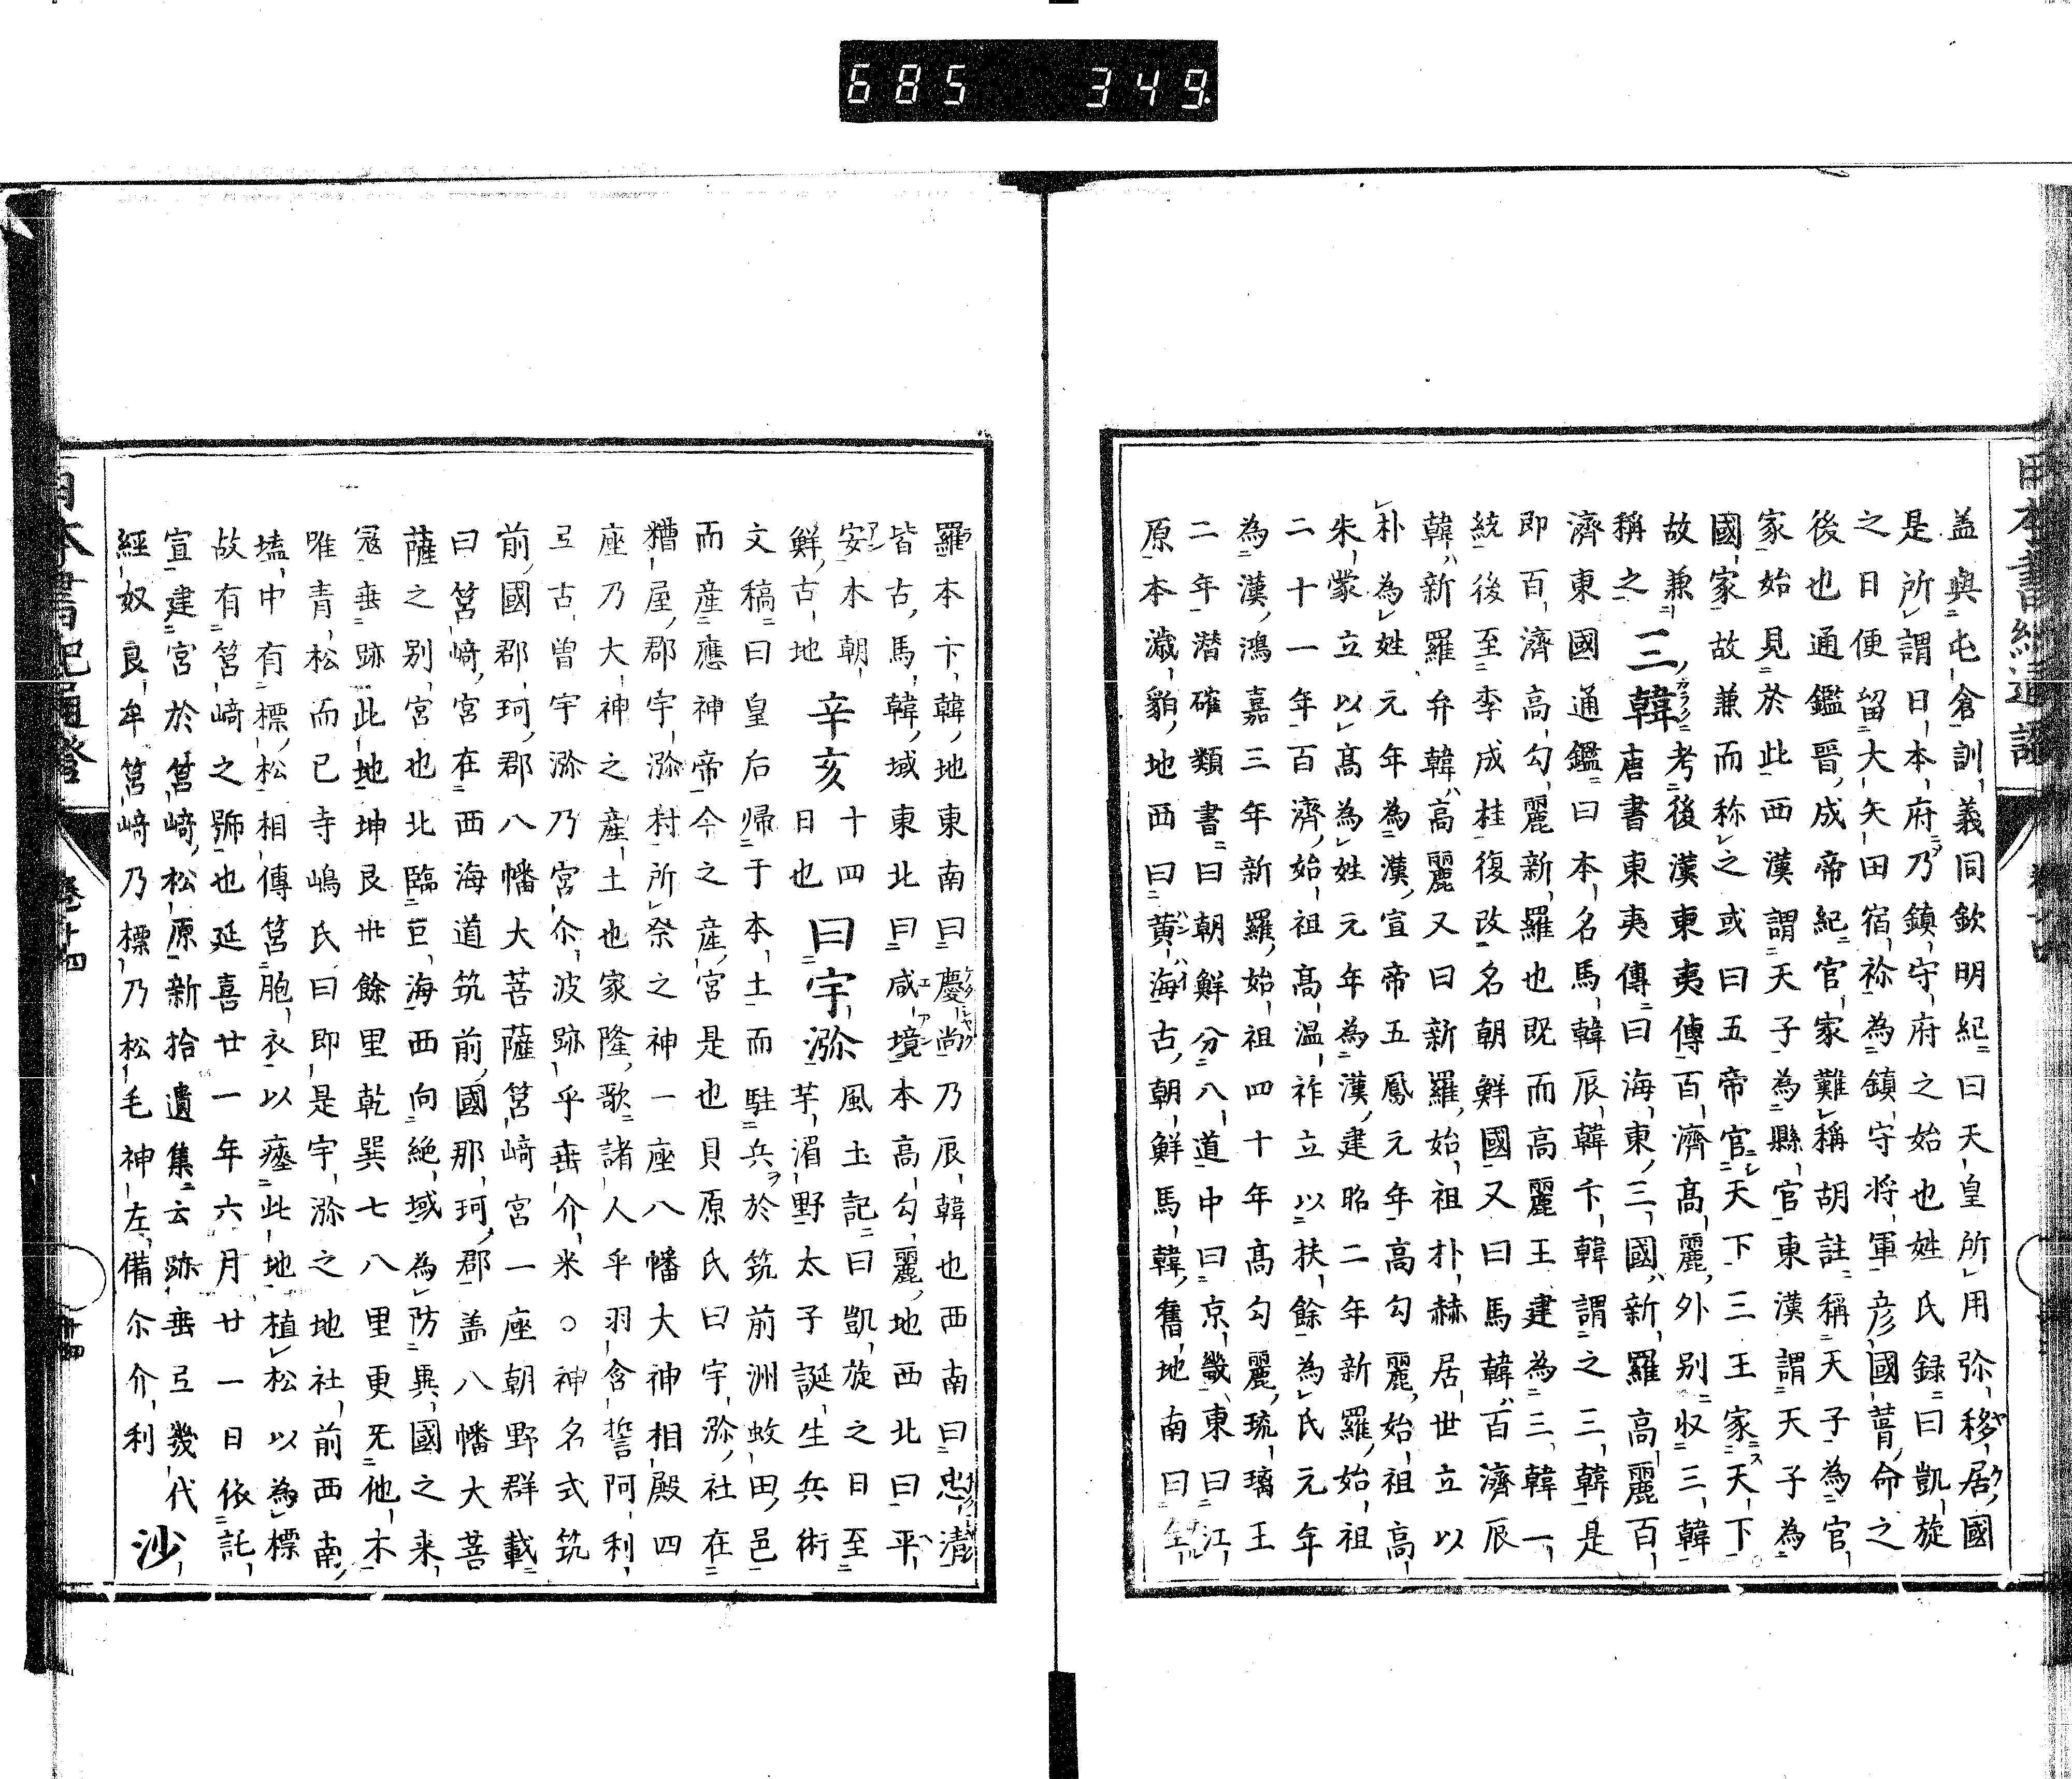 685 349
蓋與屯倉訓義同欽明紀曰天皇所用弥移居國
是所謂日本府乃鎮守府之始也姓氏録曰凱旋
之日便留大矢田宿祢為鎮守将軍彦國葺命之
後也通鑑晋成帝紀官家難稱胡註稱天子為官
家始見於此西漢謂天子為縣官東漢謂天子為
國家故兼而称之或曰五帝官天下三王家天下
故兼稱之三韓考後漢東夷傳百濟高麗外別収三韓
唐書東夷傳曰海東三國新羅高麗百
濟東國通鑑曰本名馬韓辰韓卞韓謂之三韓是
即百濟高勾麗新羅也既而高麗王建為三韓一
統後至李成桂復改名朝鮮國又曰馬韓百濟辰
韓新羅弁韓高麗又曰新羅始祖朴赫居世立以
朴為姓元年為漢宣帝五鳳元年高勾麗始祖高
朱蒙立以高為姓元年為漢建昭二年新羅始祖
二十一年百濟始祖高温祚立以扶餘為氏元年
為漢鴻嘉三年新羅始祖四十年高勾麗琉璃王
二年潜確類書曰朝鮮分八道中曰京畿東曰江
原本濊貊地西曰黄海古朝鮮馬韓舊地南曰全
羅本卞韓地東南曰慶尚乃辰韓也西南曰忠清
皆古馬韓域東北曰咸境本高勾麗地西北曰平
安本朝鮮古地
辛亥十四日也
曰宇瀰風土記曰凱旋之日至芋湄野太子誕生兵術
文稿曰皇后帰于本土而駐兵於筑前洲蚊田邑
而産應神帝今之産宮是也貝原氏曰宇瀰社在
糟屋郡宇瀰村所祭之神一座八幡大神相殿四
座乃大神之産土也家隆歌諸人乎羽含誓阿利
弖古曽宇瀰乃宮尓波跡乎垂介米○神名式筑
前國郡珂郡八幡大菩薩筥﨑宮一座朝野群載
曰筥﨑宮在西海道筑前國那珂郡盖八幡大菩
薩之别宮也北臨巨海西向絶域為防異國之来
冦垂跡此地坤艮丗餘里乾巽七八里更无他木
唯青松而已寺嶋氏曰即是宇瀰之地社前西南
壒中有標松相傳筥胞衣以瘞此地植松以為標
故有筥﨑之號也延喜廿一年六月廿一日依託
宣建宮於筥﨑松原新拾遺集云跡垂弖幾代
經奴良牟筥﨑乃標乃松毛神左備尓介利
沙
日本書紀通證
卷十四